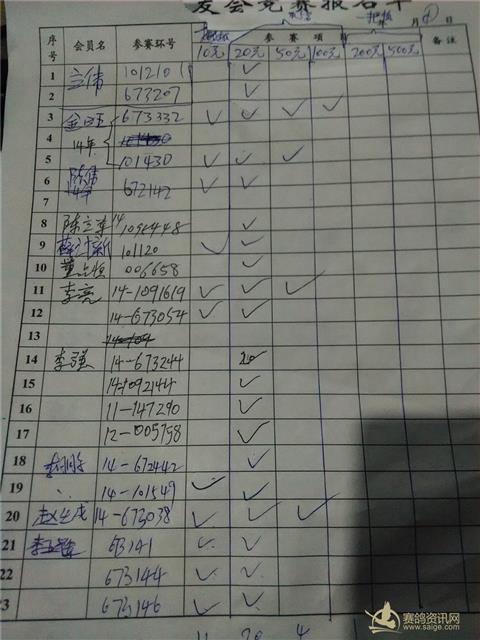 友会竞赛报名单
序号 会员名 参赛环号 参赛项目 一把抓 年 月 日 备注
10元 20元 50元 100元 200元 500元
1 立伟 101210 ✓
2 673207 ✓
3 673332 ✓ ✓ ✓ ✓
4 14年
5 101430 ✓ ✓ ✓
6 陈伟 14年 672142 ✓ ✓
7
8 陈立军 14 ✓
9 101120 ✓ ✓
10 006658 ✓
11 李亮 14-1091619 ✓ ✓ ✓
12 14-673054 ✓ ✓
13
14 李强 14-673244 20
15 14-1092144 ✓
16 11-147290 ✓
17 12-005798 ✓
18 14-672442 ✓
19 14-101549 ✓ ✓
20 14-673038 ✓ ✓ ✓
21 ✓ ✓
22 673144 ✓ ✓
23 673146 ✓ ✓
11 20 4
赛鸽资讯网
www.saige.com